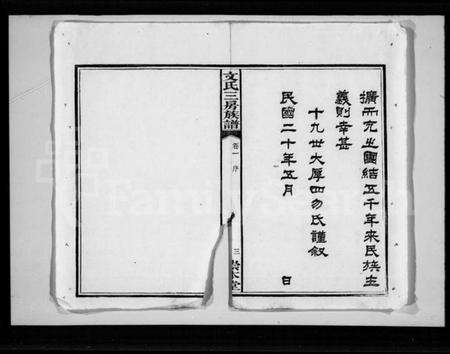 擴而充之團結五千年來民族主
義則幸甚
十九世大厚四勿氏謹敘
民國二十年五月 日
文氏三房族譜
卷一 序
三
本堂